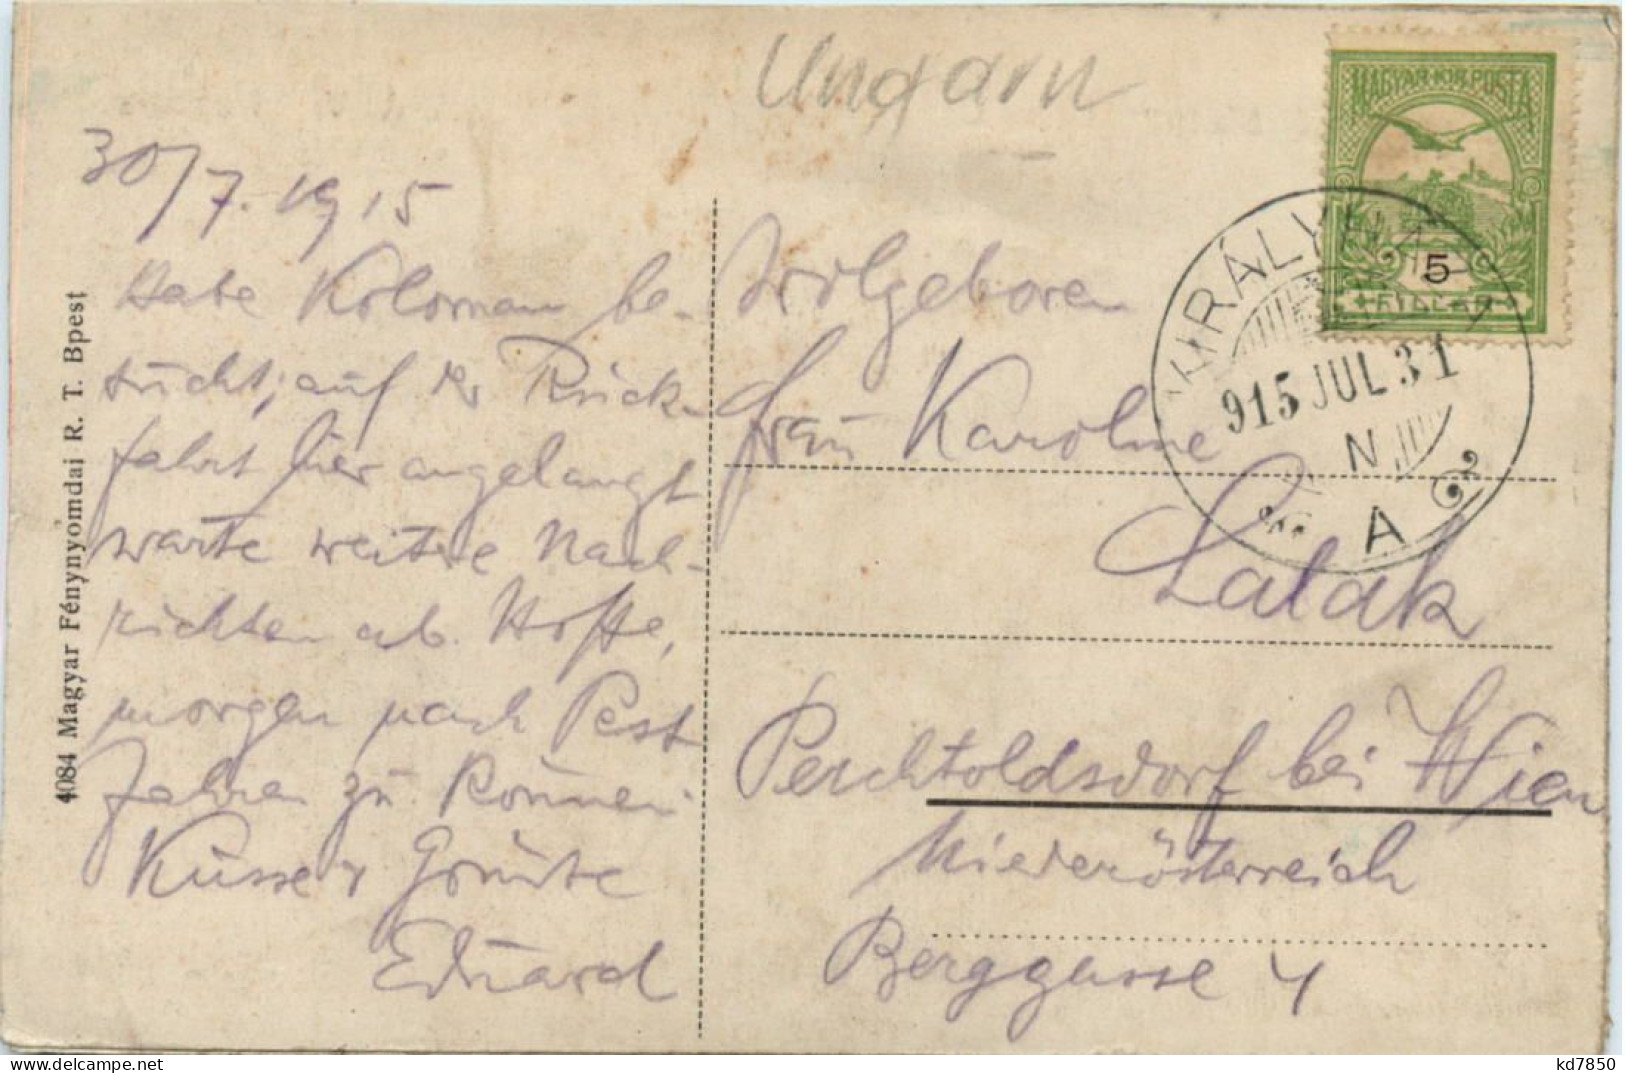 Ungarn
MAGYAR·KIR·POSTA
5
FILLER
KIRÁLYHÁZA
915 JUL 31
N
A
30/7. 1915
Habe Koloman be-
sucht, auf der Rück-
fahrt hier angelangt
warte weitere Nach-
richten ab. Hoffe,
morgen nach Pest
fahren zu können.
Küsse u Grüsse
Eduard
Wolgeboren
Frau Karoline
Latak
Perchtoldsdorf bei Wien
Niederösterreich
Berggasse 4
4084 Magyar Fénynyomdai R. T. Bpest
kd7850